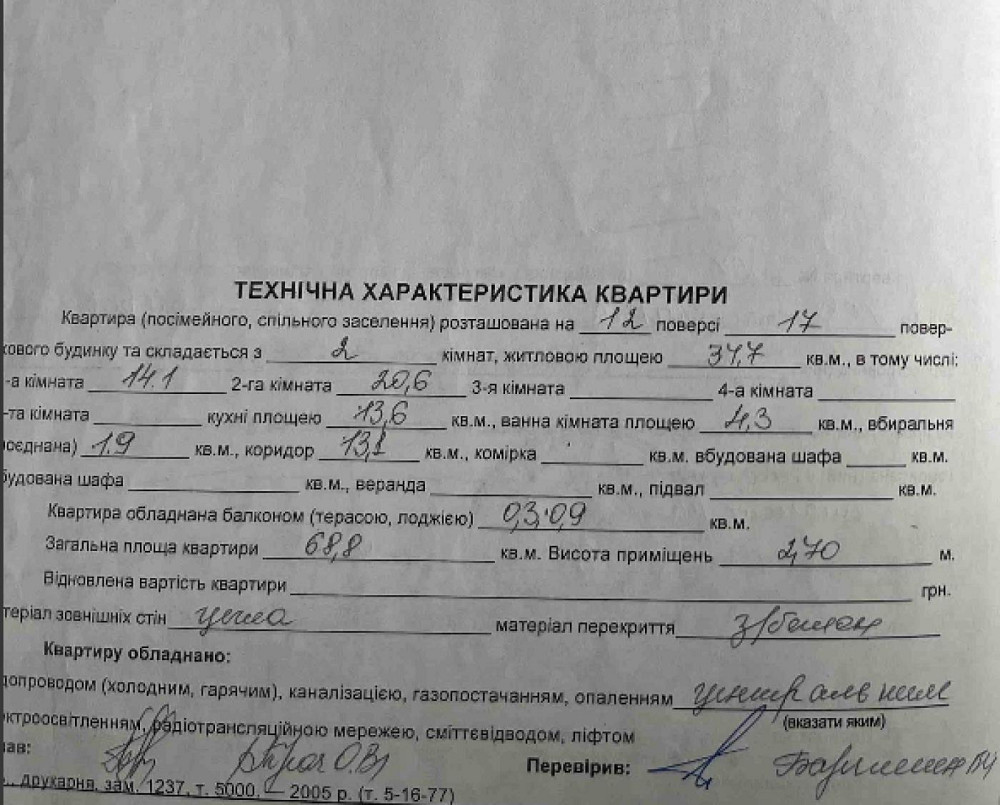 ТЕХНІЧНА ХАРАКТЕРИСТИКА КВАРТИРИ
Квартира (посімейного, спільного заселення) розташована на 12 поверсі 17 повер-
кового будинку та складається з 2 кімнат, житловою площею 34,7 кв.м., в тому числі:
-а кімната 14.1 2-га кімната 20,6 3-я кімната 4-а кімната
-та кімната кухні площею 13,6 кв.м., ванна кімната площею 4,3 кв.м., вбиральня
оєднана) 1.9 кв.м., коридор 13,1 кв.м., комірка кв.м. вбудована шафа кв.м.
будована шафа кв.м., веранда кв.м., підвал кв.м.
Квартира обладнана балконом (терасою, лоджією) 0,3; 0,9 кв.м.
Загальна площа квартири 68,8 кв.м. Висота приміщень 2,70 м.
Відновлена вартість квартири грн.
теріал зовнішніх стін цегла матеріал перекриття з/бетон
Квартиру обладнано:
допроводом (холодним, гарячим), каналізацією, газопостачанням, опаленням центральним
(вказати яким)
ктроосвітленням, радіотрансляційною мережею, сміттєвідводом, ліфтом
ав: О.В. Перевірив:
друкарня, зам. 1237, т. 5000, 2005 р. (т. 5-16-77)